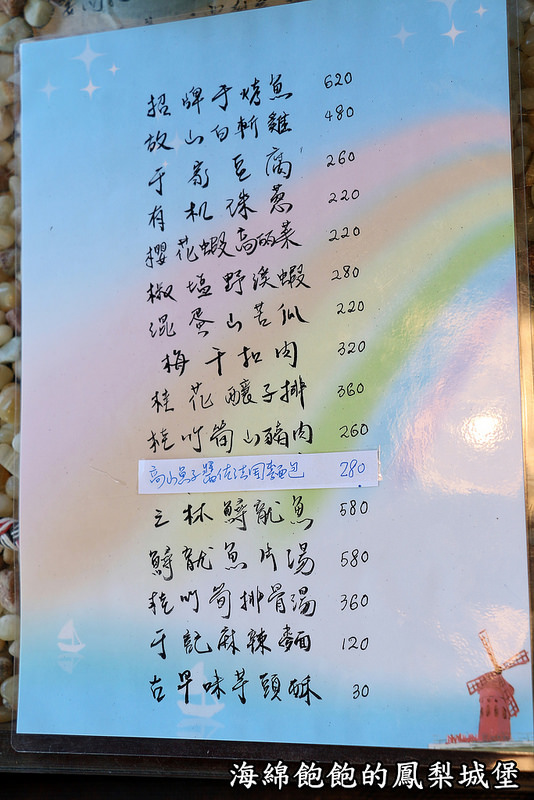 招牌于烤魚 620
放山白斬雞 480
于家豆腐 260
有机珠蔥 220
櫻花蝦高麗菜 220
椒塩野溪蝦 280
混蛋山苦瓜 220
梅干扣肉 320
桂花釀子排 360
桂竹筍山豬肉 260
高山魚子醬佐法国麵包 280
三杯鱘龍魚 580
鱘龍魚片湯 580
桂竹筍排骨湯 360
于記麻辣麵 120
古早味芋頭酥 30
海綿飽飽的鳳梨城堡